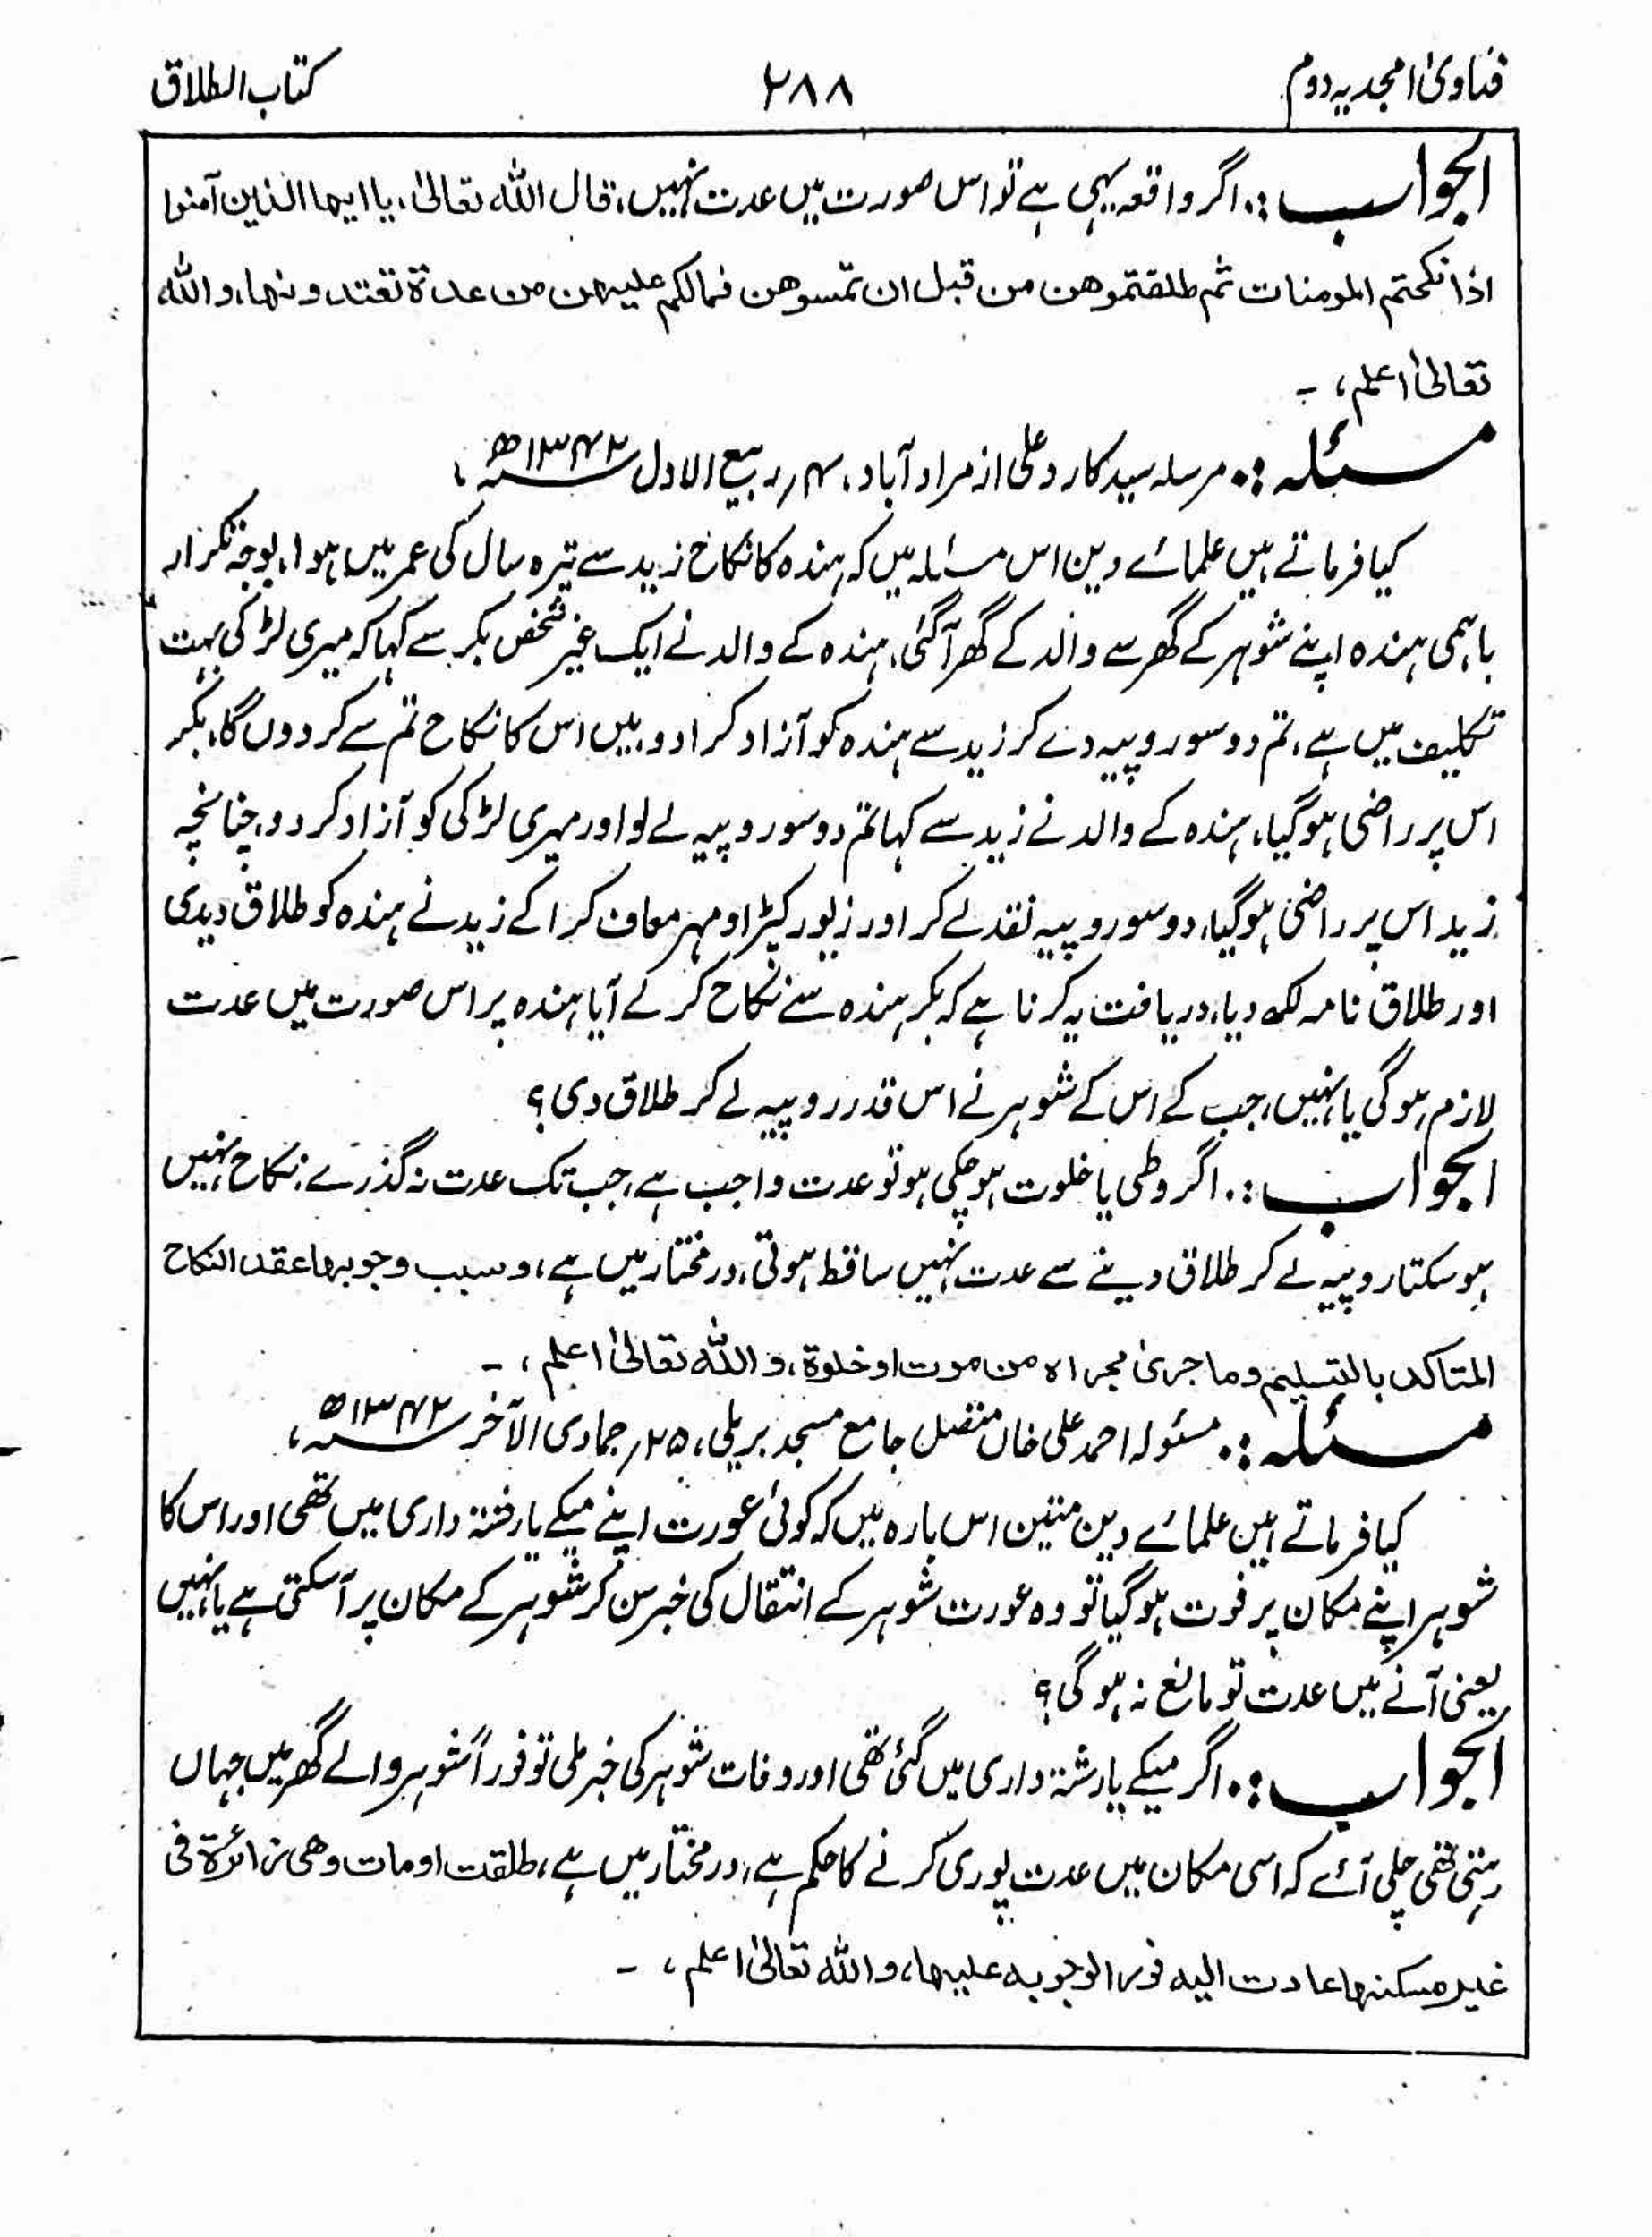 فتاویٰ امجدیہ دوم ۲۸۸ کتاب الطلاق
الجواب :۔ اگر واقعہ یہی ہے تو اس صورت میں عدت نہیں، قال اللہ تعالیٰ، یا ایھا الذین آمنوا
اذا نکحتم المومنات ثم طلقتموھن من قبل ان تمسوھن فمالکم علیھن من عدۃ تعتدونھا، واللہ
تعالیٰ اعلم، ۔
مسئلہ :۔ مرسلہ سید کارد علی از مراد آباد، ۴؍ ربیع الاول ۱۳۴۲ھ،
کیا فرماتے ہیں علمائے دین اس مسئلہ میں کہ ہندہ کا نکاح زید سے تیرہ سال کی عمر میں ہوا، بوجہ تکرار
باہمی ہندہ اپنے شوہر کے گھر سے والد کے گھر آگئی، ہندہ کے والد نے ایک غیر شخص بکر سے کہا کہ میری لڑکی بہت
تکلیف میں ہے، تم دو سو روپیہ دے کر زید سے ہندہ کو آزاد کرا دو، میں اس کا نکاح تم سے کر دوں گا، بکر
اس پر راضی ہوگیا، ہندہ کے والد نے زید سے کہا تم دو سو روپیہ لے لو اور میری لڑکی کو آزاد کر دو، چنانچہ
زید اس پر راضی ہوگیا، دو سو روپیہ نقد لے کر اور زیور کپڑا و مہر معاف کرا کے زید نے ہندہ کو طلاق دیدی
اور طلاق نامہ لکھ دیا، دریافت یہ کرنا ہے کہ بکر ہندہ سے نکاح کرلے آیا ہندہ پر اس صورت میں عدت
لازم ہوگی یا نہیں، جب کے اس کے شوہر نے اس قدر روپیہ لے کر طلاق دی؟
الجواب :۔ اگر وطی یا خلوت ہوچکی ہو تو عدت واجب ہے، جب تک عدت نہ گذرے نکاح نہیں
ہوسکتا روپیہ لے کر طلاق دینے سے عدت نہیں ساقط ہوتی، درمختار میں ہے، وسبب وجوبھا عقد النکاح
المتاکد بالتسلیم وما جریٰ مجراہ من موت او خلوۃ، واللہ تعالیٰ اعلم، ۔
مسئلہ :۔ مسئولہ احمد علی خاں متصل جامع مسجد بریلی، ۲۵؍ جمادی الآخر ۱۳۴۲ھ،
کیا فرماتے ہیں علمائے دین متین اس بارہ میں کہ کوئی عورت اپنے میکے یا رشتہ داری میں تھی اور اس کا
شوہر اپنے مکان پر فوت ہوگیا تو وہ عورت شوہر کے انتقال کی خبر سن کر شوہر کے مکان پر آسکتی ہے یا نہیں
یعنی آنے میں عدت تو مانع نہ ہوگی؟
الجواب :۔ اگر میکے یا رشتہ داری میں گئی تھی اور وفات شوہر کی خبر ملی تو فوراً شوہر والے گھر میں جہاں
رہتی تھی چلی آئے کہ اسی مکان میں عدت پوری کرنے کا حکم ہے، درمختار میں ہے، طلقت او مات وھی زائرۃ فی
غیر مسکنھا عادت الیہ فورا لوجوبہ علیھا، واللہ تعالیٰ اعلم، ۔